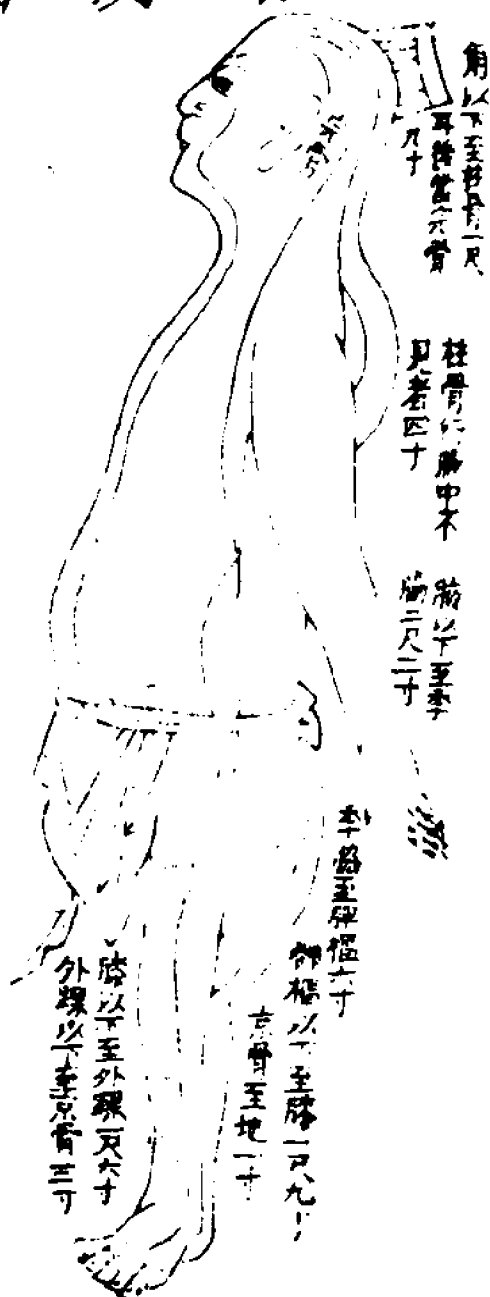 角以下至柱骨一尺
耳後當完骨
九寸
柱骨行腋中不
見者四寸
腋以下至季
脇二尺二寸
季脇至髀樞六寸
髀樞以下至膝一尺九寸
京骨至地一寸
膝以下至外踝一尺六寸
外踝以下至京骨三寸